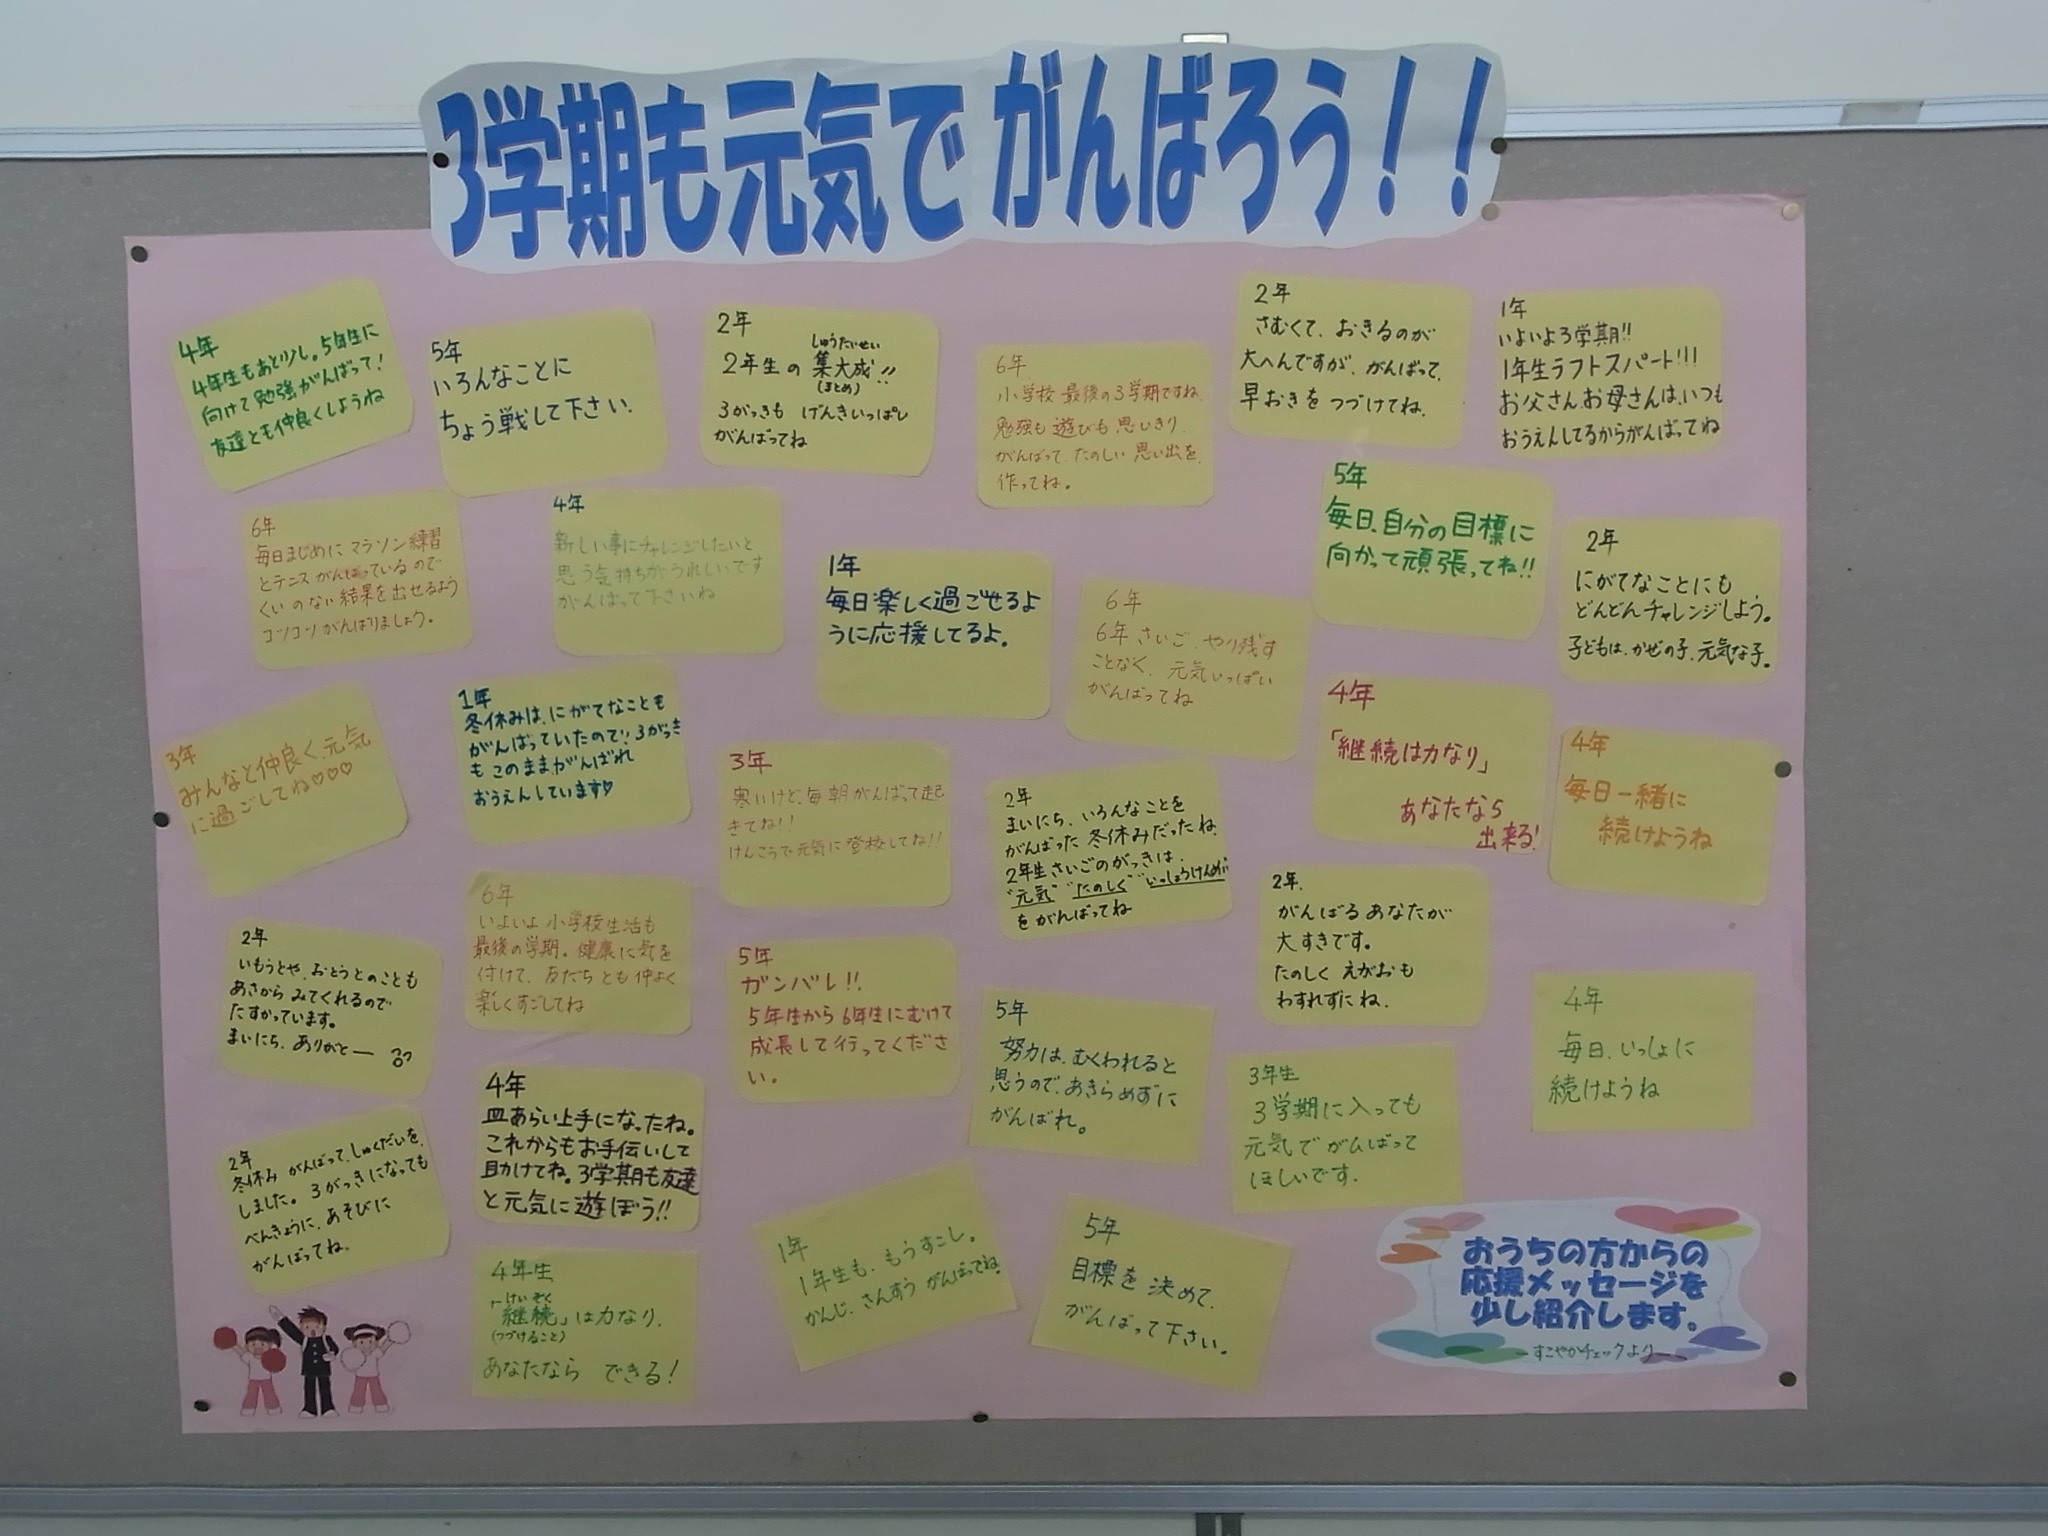 3学期も元気で がんばろう!!
4年
4年生もあと少し。5年生に
向けて勉強がんばって!
友達とも仲良くしようね
5年
いろんなことに
ちょう戦して下さい.
2年
しゅうたいせい
2年生の集大成!!
(まとめ)
3がっきも げんきいっぱい
がんばってね
6年.
小学校 最後の3学期ですね.
勉強も 遊びも 思いきり.
がんばって、たのしい 思い出を.
作ってね。
2年
さむくて、おきるのが
大へんですが、がんばって、
早おきを つづけてね.
1年
いよいよ3学期!!
1年生ラフトスパート!!!
お父さん、お母さんは、いつも
おうえんしてるからがんばってね
6年
毎日まじめに マラソン練習
とテニス がんばっているので
くい のない 結果を出せるよう
コツコツ がんばりましょう。
4年
新しい事にチャレンジしたいと
思う気持ちがうれしいです
がんばって下さいね
1年
毎日楽しく過ごせるよ
うに応援してるよ。
6年
6年 さいご、やり残す
ことなく、元気いっぱい
がんばってね
5年
毎日、自分の目標に
向かって頑張ってね!!
2年
にがてなことにも
どんどんチャレンジしよう。
子どもは、かぜの子、元気な子。
3年
みんなと仲良く、元気
に過ごしてね♡♡♡
1年
冬休みは、にがてなことも
がんばっていたので!! 3がっき
も このままがんばれ
おうえんしています♡
3年
寒いけど、毎朝がんばって起
きてね!!
けんこうで元気に登校してね!!
2年
まいにち、いろんなことを
がんばった 冬休みだったね.
2年生さいごのがっきは、
"元気" "たのしく" "いっしょうけんめい"
を がんばってね
4年
「継続は力なり」
あなたなら
出来る!
4年
毎日一緒に
続けようね
2年
いもうとや、おとうとのことも
あさから みてくれるので
たすかっています。
まいにち、ありがとー
6年
いよいよ 小学校生活も
最後の学期。健康に気を
付けて、友だち とも 仲よく
楽しくすごしてね
5年
ガンバレ!!
5年生から6年生にむけて
成長して行ってくださ
い。
2年.
がんばる あなたが
大すきです。
たのしく えがおも
わすれずに ね.
5年
努力は、むくわれると
思うので、あきらめずに
がんばれ。
4年
毎日、いっしょに
続けようね
2年
冬休み がんばって、しゅくだいを、
しました。3がっきになっても
べんきょうに、あそびに
がんばってね.
4年
皿あらい上手になったね。
これからもお手伝いして
助けてね。3学期も友達
と元気に遊ぼう!!
3年生
3学期に入っても
元気で がんばって
ほしいです.
4年生
けいぞく
「継続」は力なり.
(つづけること)
あなたなら できる!
1年
1年生も、もうすこし。
かんじ、さんすう がんばってね.
5年
目標を 決めて、
がんばって下さい。
おうちの方からの
応援メッセージを
少し紹介します。
ーすこやかチェックよりー